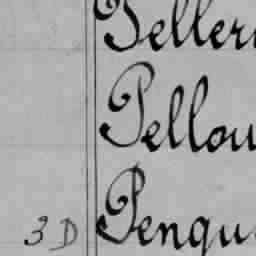 Peller
Pellou
3 D Pengu